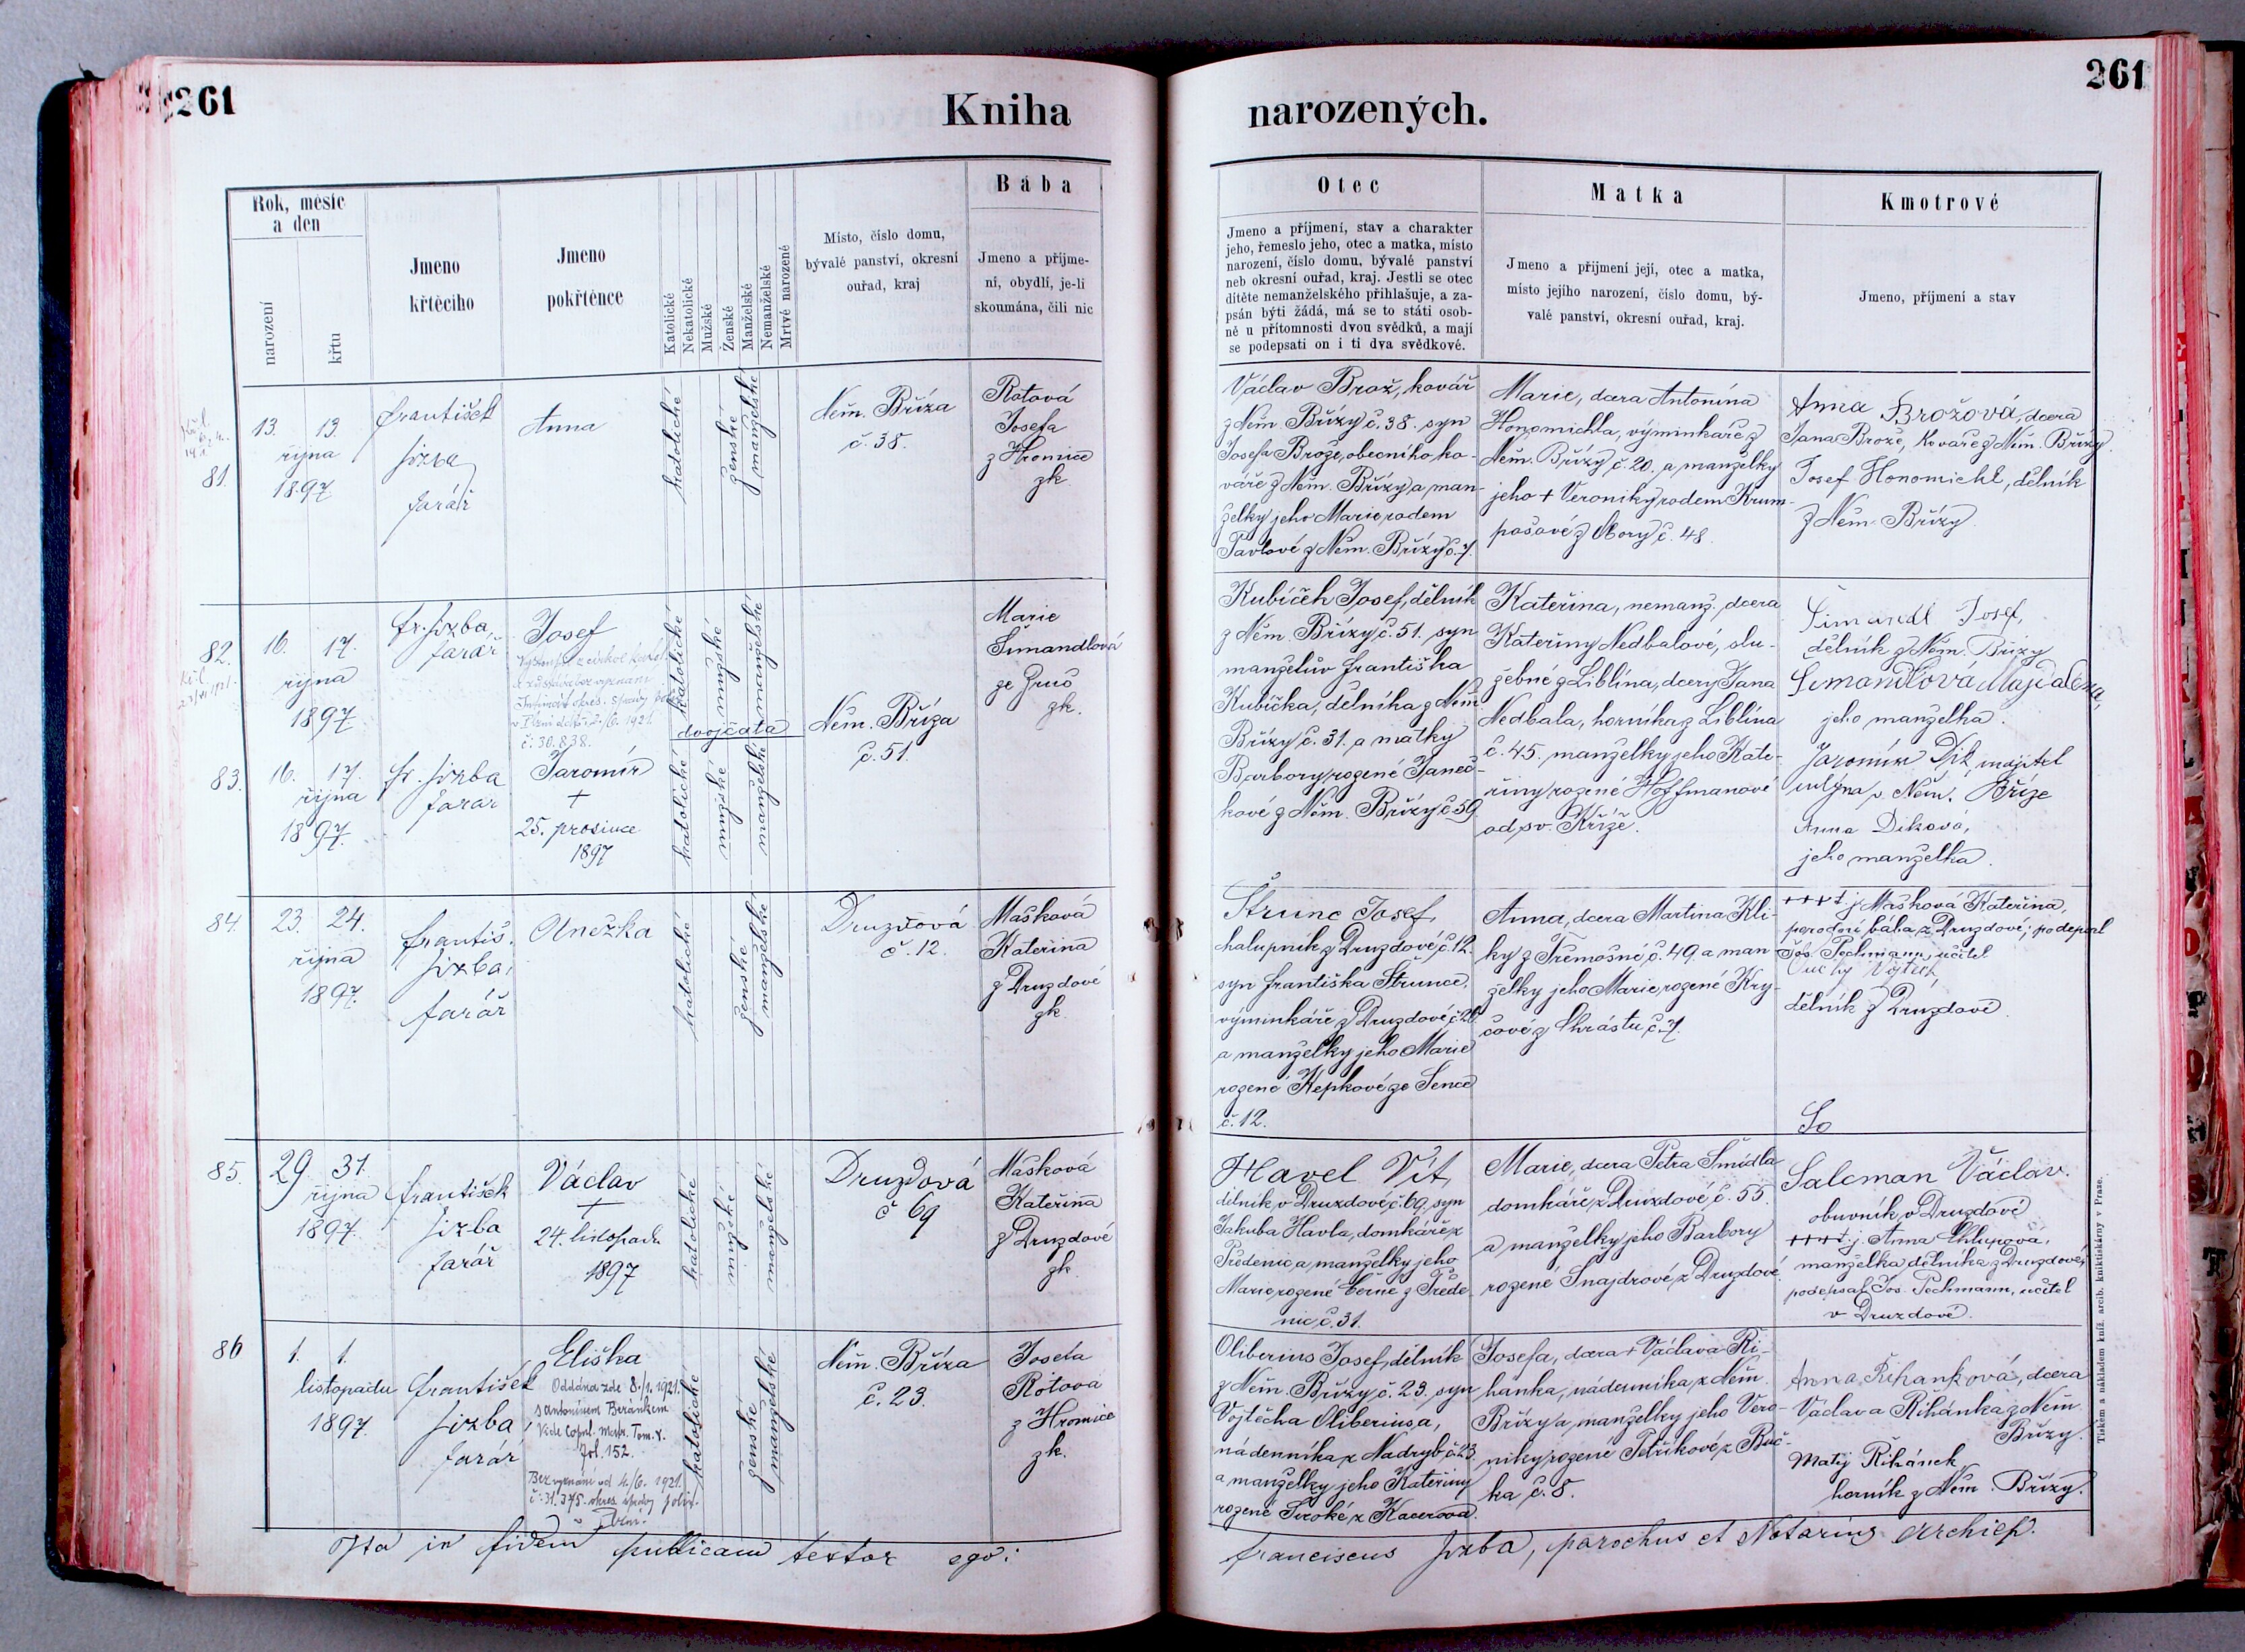 261
Kniha
narozených.
261
Rok, měsíc
a den
narození
křtu
Jmeno
křtěcího
Jmeno
pokřtěnce
Katolické
Nekatolické
Mužské
Ženské
Manželské
Nemanželské
Mrtvé narozené
Místo, číslo domu,
bývalé panství, okresní
ouřad, kraj
Bába
Jmeno a příjme-
ní, obydlí, je-li
skoumána, čili nic
Otec
Jmeno a příjmení, stav a charakter
jeho, řemeslo jeho, otec a matka, místo
narození, číslo domu, bývalé panství
neb okresní ouřad, kraj. Jestli se otec
dítěte nemanželského přihlašuje, a za-
psán býti žádá, má se to státi osob-
ně u přítomnosti dvou svědků, a mají
se podepsati on i ti dva svědkové.
Matka
Jmeno a příjmení její, otec a matka,
místo jejího narození, číslo domu, bý-
valé panství, okresní ouřad, kraj.
Kmotrové
Jmeno, příjmení a stav
81.
13. 13.
října
1897
František
Jizba
farář
Anna
katolické
ženské
manželské
Něm. Bříza
č. 38.
Rotová
Josefa
z Hromice
zk.
Václav Brož, kovář
z Něm. Břízy č. 38. syn
Josefa Brože, obecního ko-
váře z Něm. Břízy a man-
želky jeho Marie rodem
Pavlové z Něm. Břízy č. 7.
Marie, dcera Antonína
Honomichla, výminkáře z
Něm. Břízy č. 20. a manželky
jeho + Veroniky rodem Krum-
pošové z Obory č. 48.
Anna Brožová, dcera
Jana Brože, kováře z Něm. Břízy.
Josef Honomichl, dělník
z Něm. Břízy
82.
16. 17.
října
1897
Fr. Jizba,
farář
Josef
č. 30.838.
katolické
mužské
manželské
dvojčata
Něm. Bříza
č. 51.
Marie
Šimandlová
ze Zruč
zk.
83.
16. 17.
října
1897.
Fr. Jizba
farář
Jaromír
+
25. prosince
1897
katolické
mužské
manželské
Kubíček Josef, dělník
z Něm. Břízy č. 51. syn
manželův Františka
Kubíčka, dělníka z Něm.
Břízy č. 31. a matky
Barbory rozené Janeč-
kové z Něm. Břízy č. 59.
Kateřina, nemanž. dcera
Kateřiny Nedbalové, slu-
žebné z Liblína, dcery Jana
Nedbala, horníka z Liblína
č. 45. manželky jeho Kate-
řiny rozené Hoffmanové
od sv. Kříže.
Šimandl Josef,
dělník z Něm. Břízy
Šimandlová Majdaléna,
jeho manželka.
Jaromír Dik, majitel
mlýna v Něm. Bříze
Anna Diková,
jeho manželka.
84.
23. 24.
října
1897.
Františ.
Jizba,
farář
Anežka
katolické
ženské
manželské
Druzdová
č. 12.
Mašková
Kateřina
z Druzdové
zk.
Štrunc Josef,
chalupník z Druzdové č. 12.
syn Františka Štrunce,
výminkáře z Druzdové č. 20
a manželky jeho Marie
rozené Kepkové ze Sence
č. 12.
Anna, dcera Martina Kli-
ky z Třemošné č. 49. a man-
želky jeho Marie, rozené Kry-
čové z Chrástu č. 7.
+++ t. j. Mašková Kateřina,
porodní bába z Druzdové; podepsal
Jos. Pechmann, učitel
Vojtěch,
dělník z Druzdové.
So
85.
29. 31.
října
1897.
František
Jizba
farář
Václav
+
24. listopadu
1897
katolické
mužské
manželské
Druzdová
č 69
Mašková
Kateřina
z Druzdové
zk.
Havel Vít,
dělník v Druzdové č. 69, syn
Jakuba Havla, domkáře z
Předenic a manželky jeho
Marie rozené Černé z Přede-
nic č. 31.
Marie, dcera Petra Šmídla
domkáře z Druzdové č. 55.
a manželky jeho Barbory
rozené Šnajdrové z Druzdové.
Salcman Václav.
obuvník v Druzdové
+++ t. j. Anna Chlupová,
manželka dělníka z Druzdové,
podepsal Jos. Pechmann, učitel
v Druzdové.
86
1. 1.
listopadu
1897.
František
Jizba,
farář
Eliška
Oddána zde 8./1. 1921.
s Antonínem Beránkem
Vide Copul. Matr. Tom. V.
Fol. 152.
Bez vyznání od 4./6. 1921.
č. 31.375. okres. správy polit.
katolické
ženské
manželské
Něm. Bříza
č. 23.
Josefa
Rotová
z Hromice
zk.
Oliberius Josef, dělník
z Něm. Břízy č. 23. syn
Vojtěcha Oliberiusa,
nádenníka z Nadryb č. 23.
a manželky jeho Kateřiny
rozené Široké z Kacerova.
Josefa, dcera + Václava Ři-
hánka, nádenníka z Něm.
Břízy a manželky jeho Vero-
niky rozené Petříkové z Buč-
ka č. 8.
Anna Řihánková, dcera
Václava Řihánka z Něm.
Břízy.
Matěj Řihánek
horník z Něm. Břízy.
Ita in fidem publicam testor ego:
Franciscus Jizba, parochus et Notarius Archiep.
Tiskem a nákladem kníž. arcib. knihtiskárny v Praze.